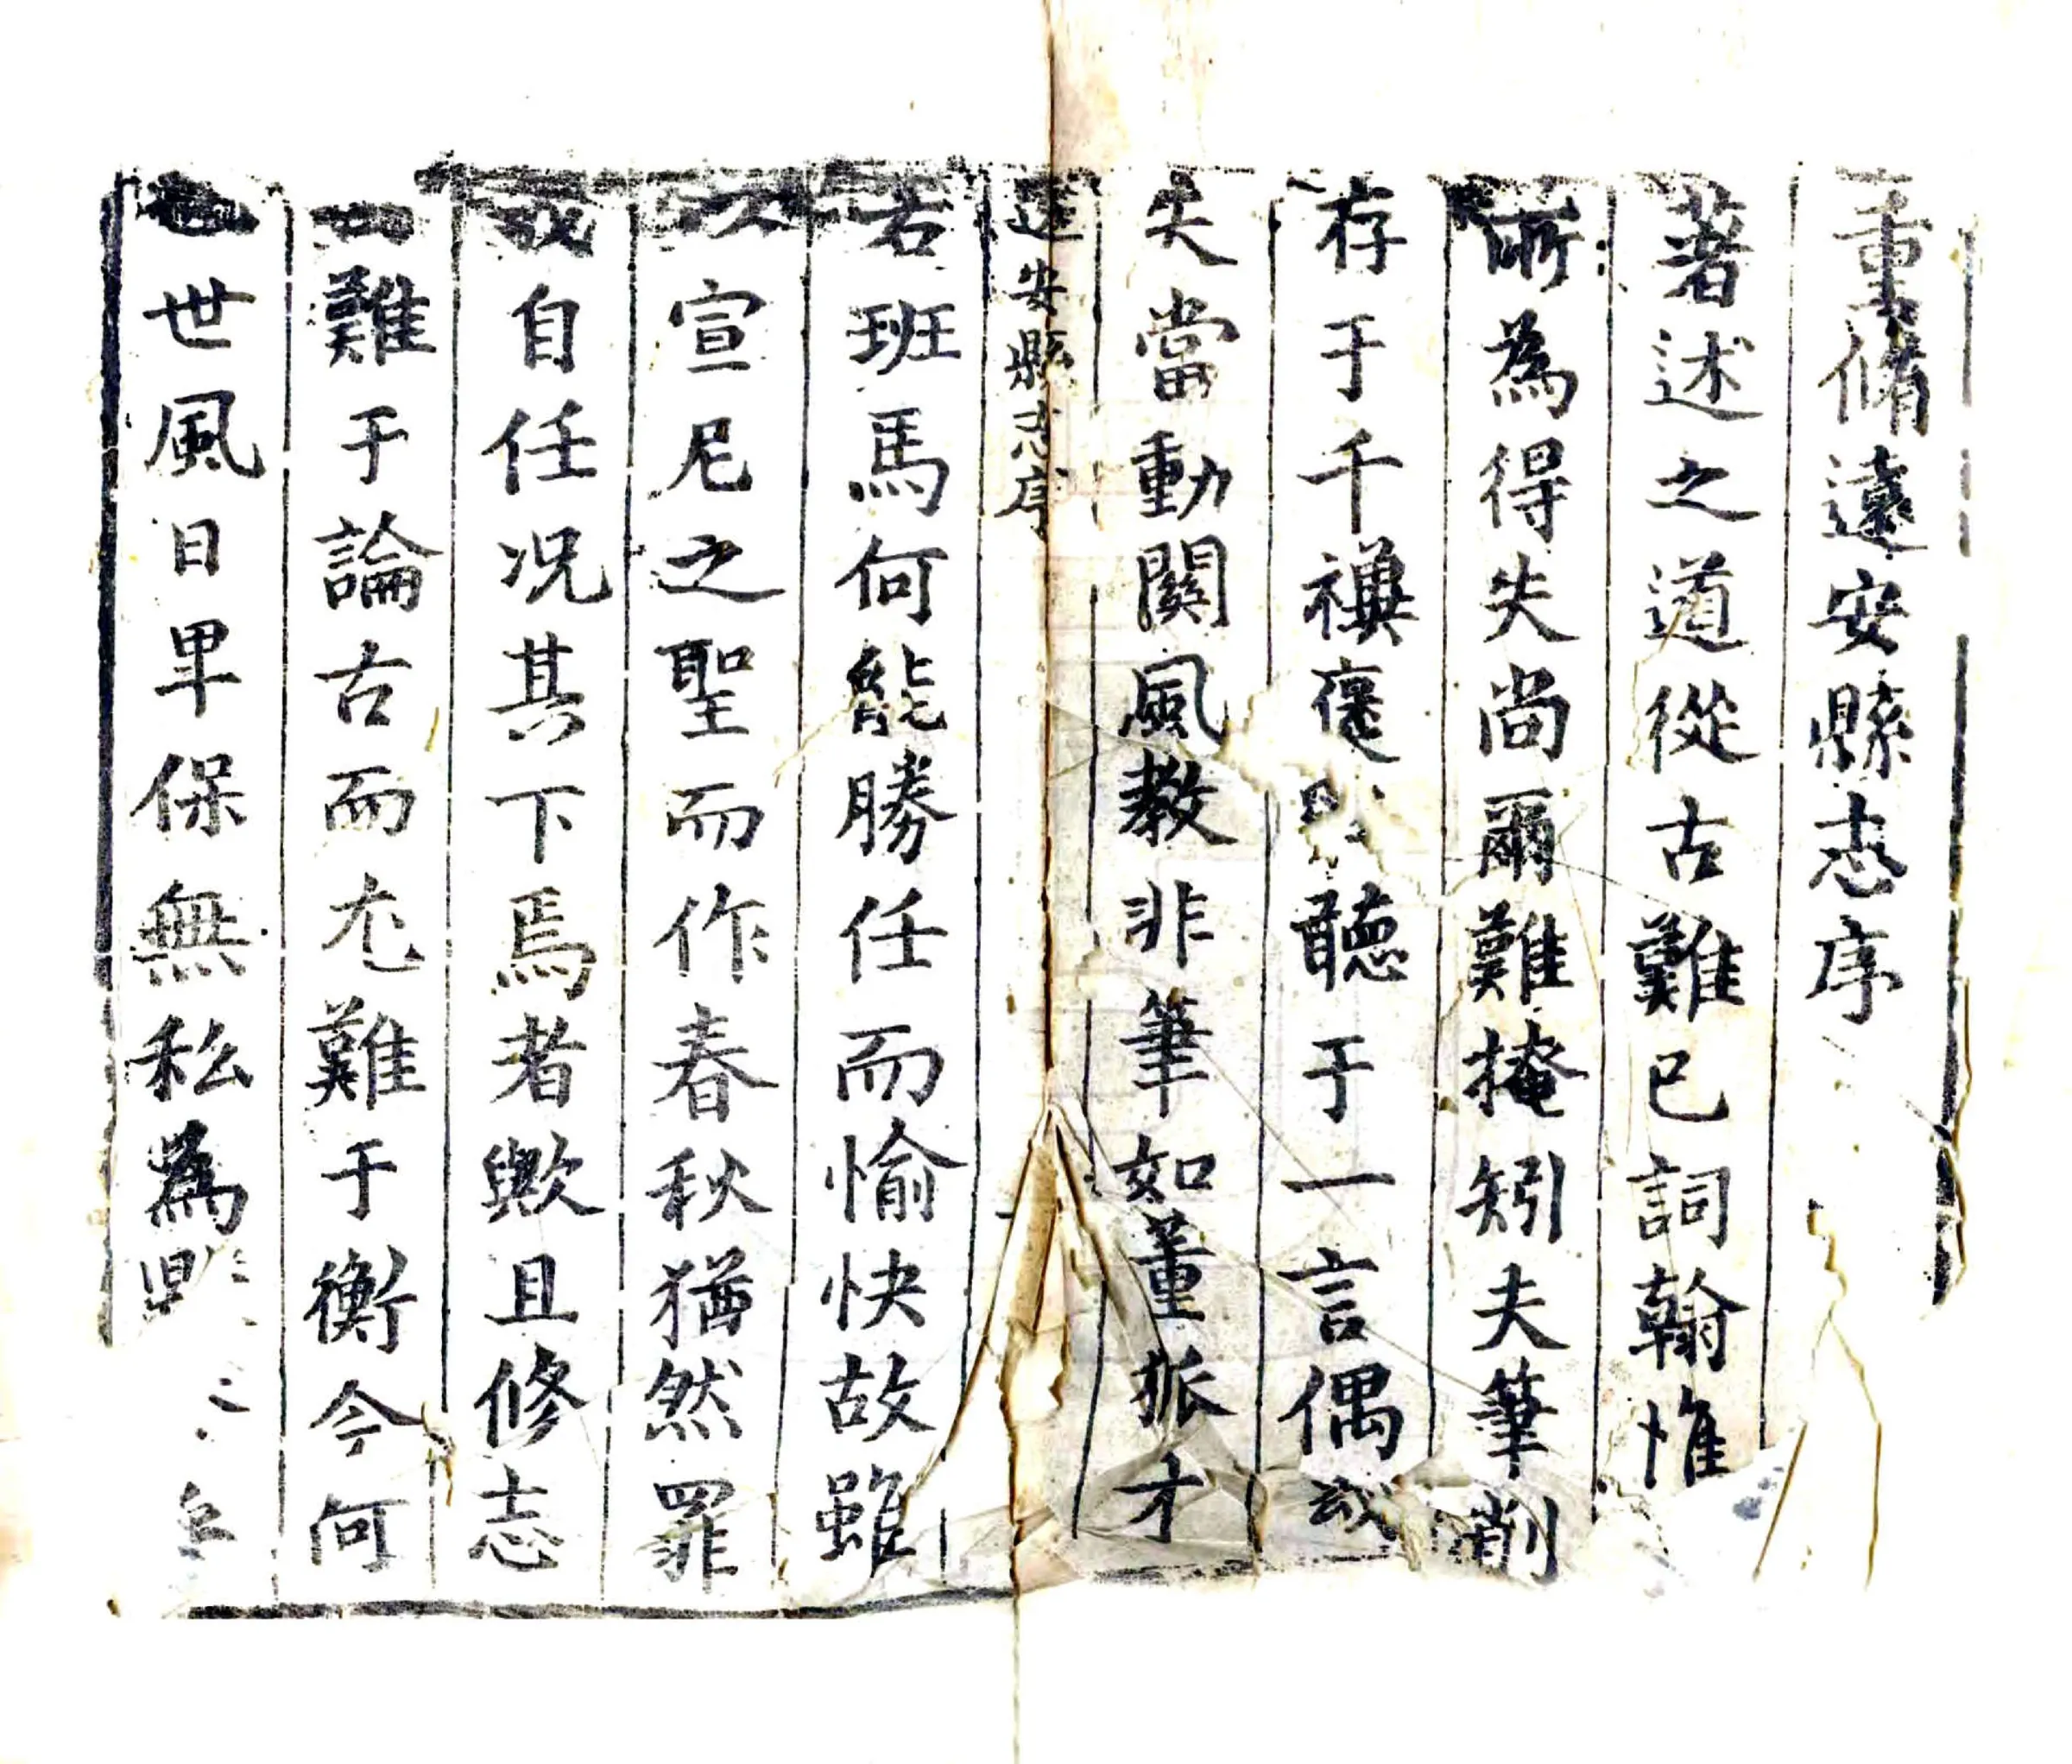 重脩遠安縣志序
著述之道從古難已詞翰惟
所為得失尚爾難掩矧夫筆削
存于千禩褒聽于一言偶或
失當動關風教非筆如董狐才
遠安縣志序
若班馬何能勝任而愉快故雖
以宣尼之聖而作春秋猶然罪
我自任况其下焉者歟且修志
難于論古而尤難于衡今何
世風日卑保無私為